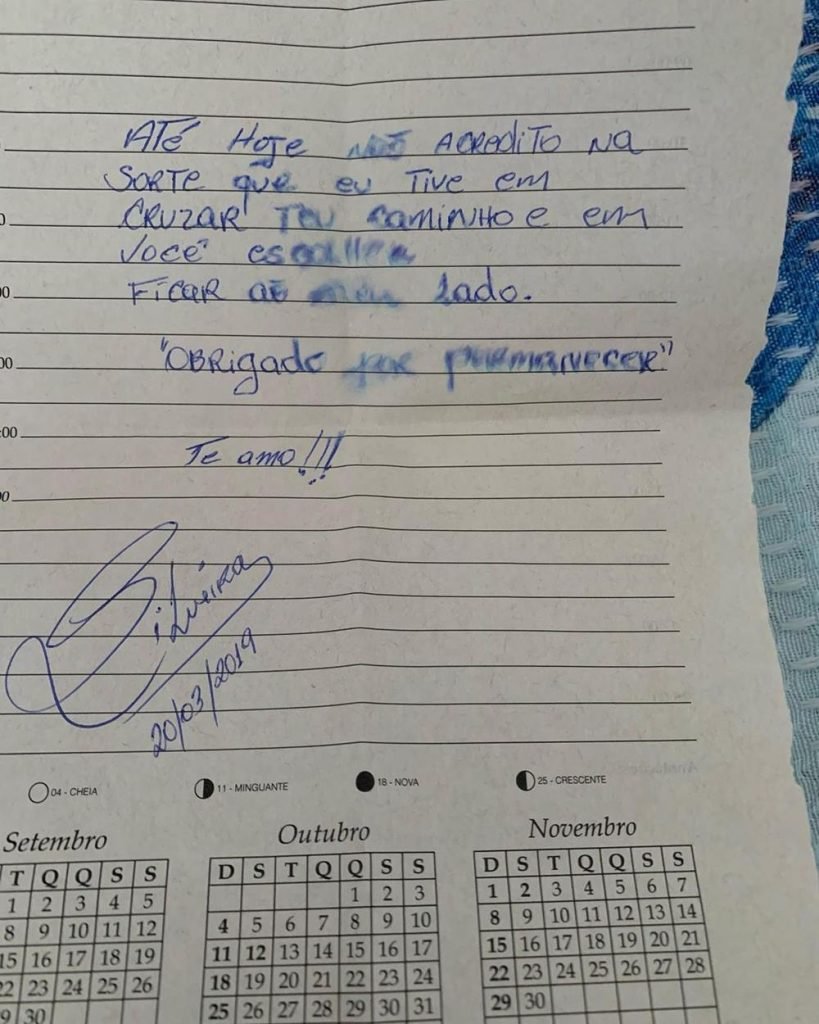 ATÉ HOJE NÃO ACREDITO NA
SORTE que eu TIVE em
CRUZAR TEU CAMINHO E em
VOCÊ
FICAR ao meu lado.
"OBRIGADO por PERMANECER"
Te amo!!!
Silveira
20/03/2019
04 - CHEIA 11 - MINGUANTE 18 - NOVA 25 - CRESCENTE
Setembro Outubro Novembro
T Q Q S S D S T Q Q S S D S T Q Q S S
1 2 3 4 5 1 2 3 1 2 3 4 5 6 7
8 9 10 11 12 4 5 6 7 8 9 10 8 9 10 11 12 13 14
15 16 17 18 19 11 12 13 14 15 16 17 15 16 17 18 19 20 21
22 23 24 25 26 18 19 20 21 22 23 24 22 23 24 25 26 27 28
30 25 26 27 28 29 30 31 29 30